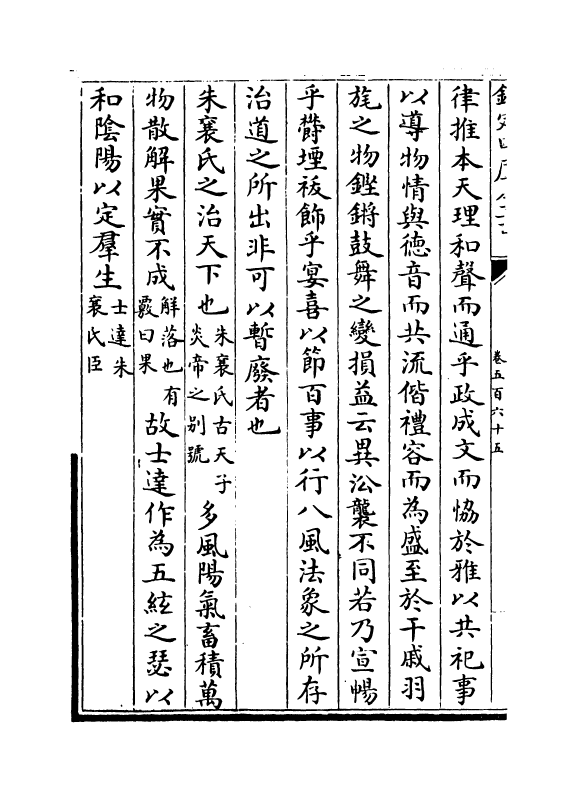 卷五百六十五
律推本天理和聲而通乎政成文而恊於雅以共祀事
以導物情與德音而共流偕禮容而為盛至於干戚羽
旄之物鏗鏘鼓舞之變損益云異㳂襲不同若乃宣暢
乎欝堙祓飾乎宴喜以節百事以行八風法象之所存
治道之所出非可以暫廢者也
朱襄氏之治天下也朱襄氏古天子炎帝之别號多風陽氣畜積萬
物散解果實不成解落也有覈曰果故士達作為五絃之瑟以
和陰陽以定羣生士達朱襄氏臣